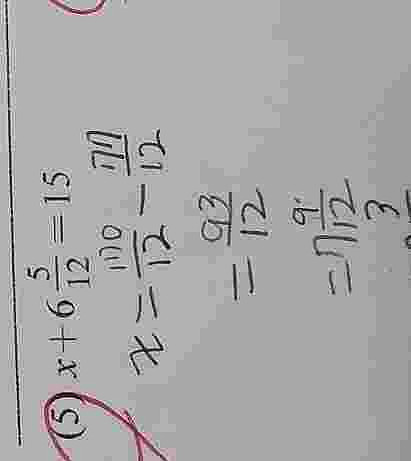 (5) x + 6 5/12 = 15
x = 170/12 − 77/12
= 93/12
= 7 9/12
3